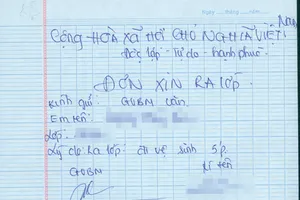 Ngày ..... tháng ..... năm .....
CỘNG HÒA XÃ HỘI CHỦ NGHĨA VIỆT Nam
Độc lập - Tự do - Hạnh phúc
ĐƠN XIN RA LỚP
Kính gửi: GVBM Văn
Em tên:
Lớp:
Lý do ra lớp: đi vệ sinh 5p.
GVBM Ký tên